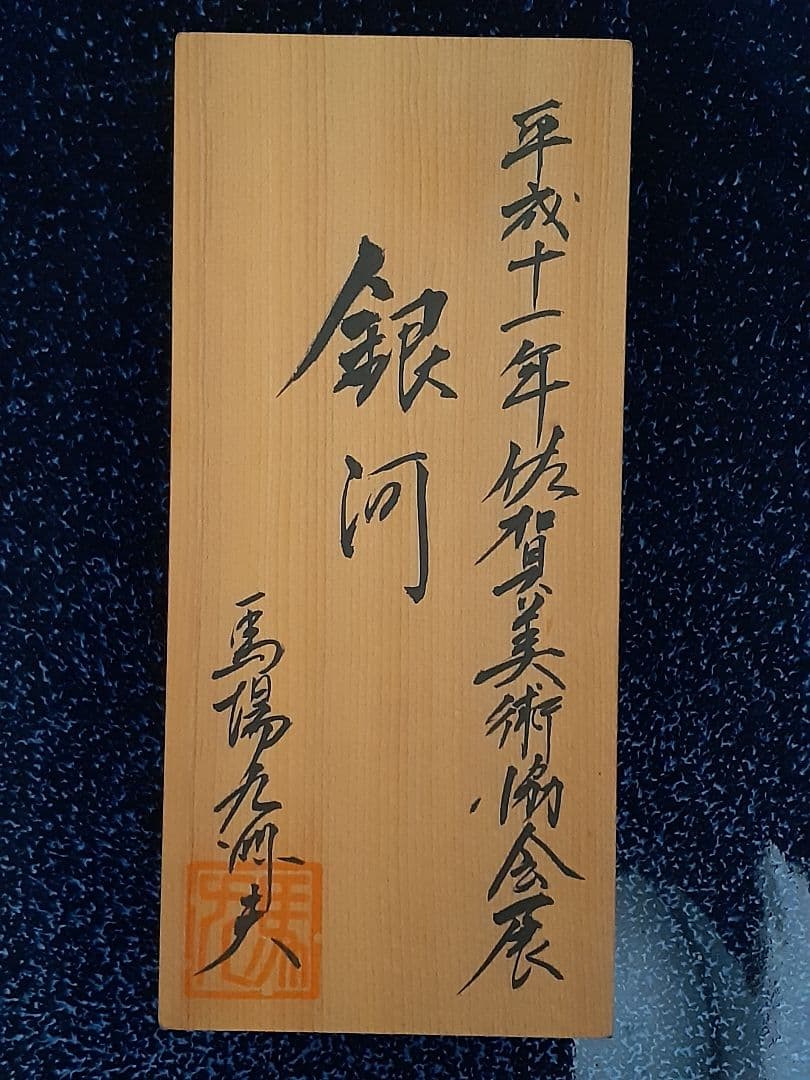 平成十一年佐賀美術協会展
銀河
馬場九洲夫